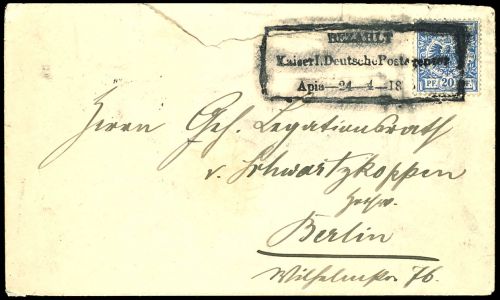 BEZAHLT
Kaiserl. Deutsche Postagentur
Apia—24—4—18
PF. 20 PF.
Herrn Geh. Legationsrath
v. Schwartzkoppen
Hochw.
Berlin
Wilhelmstr 76.